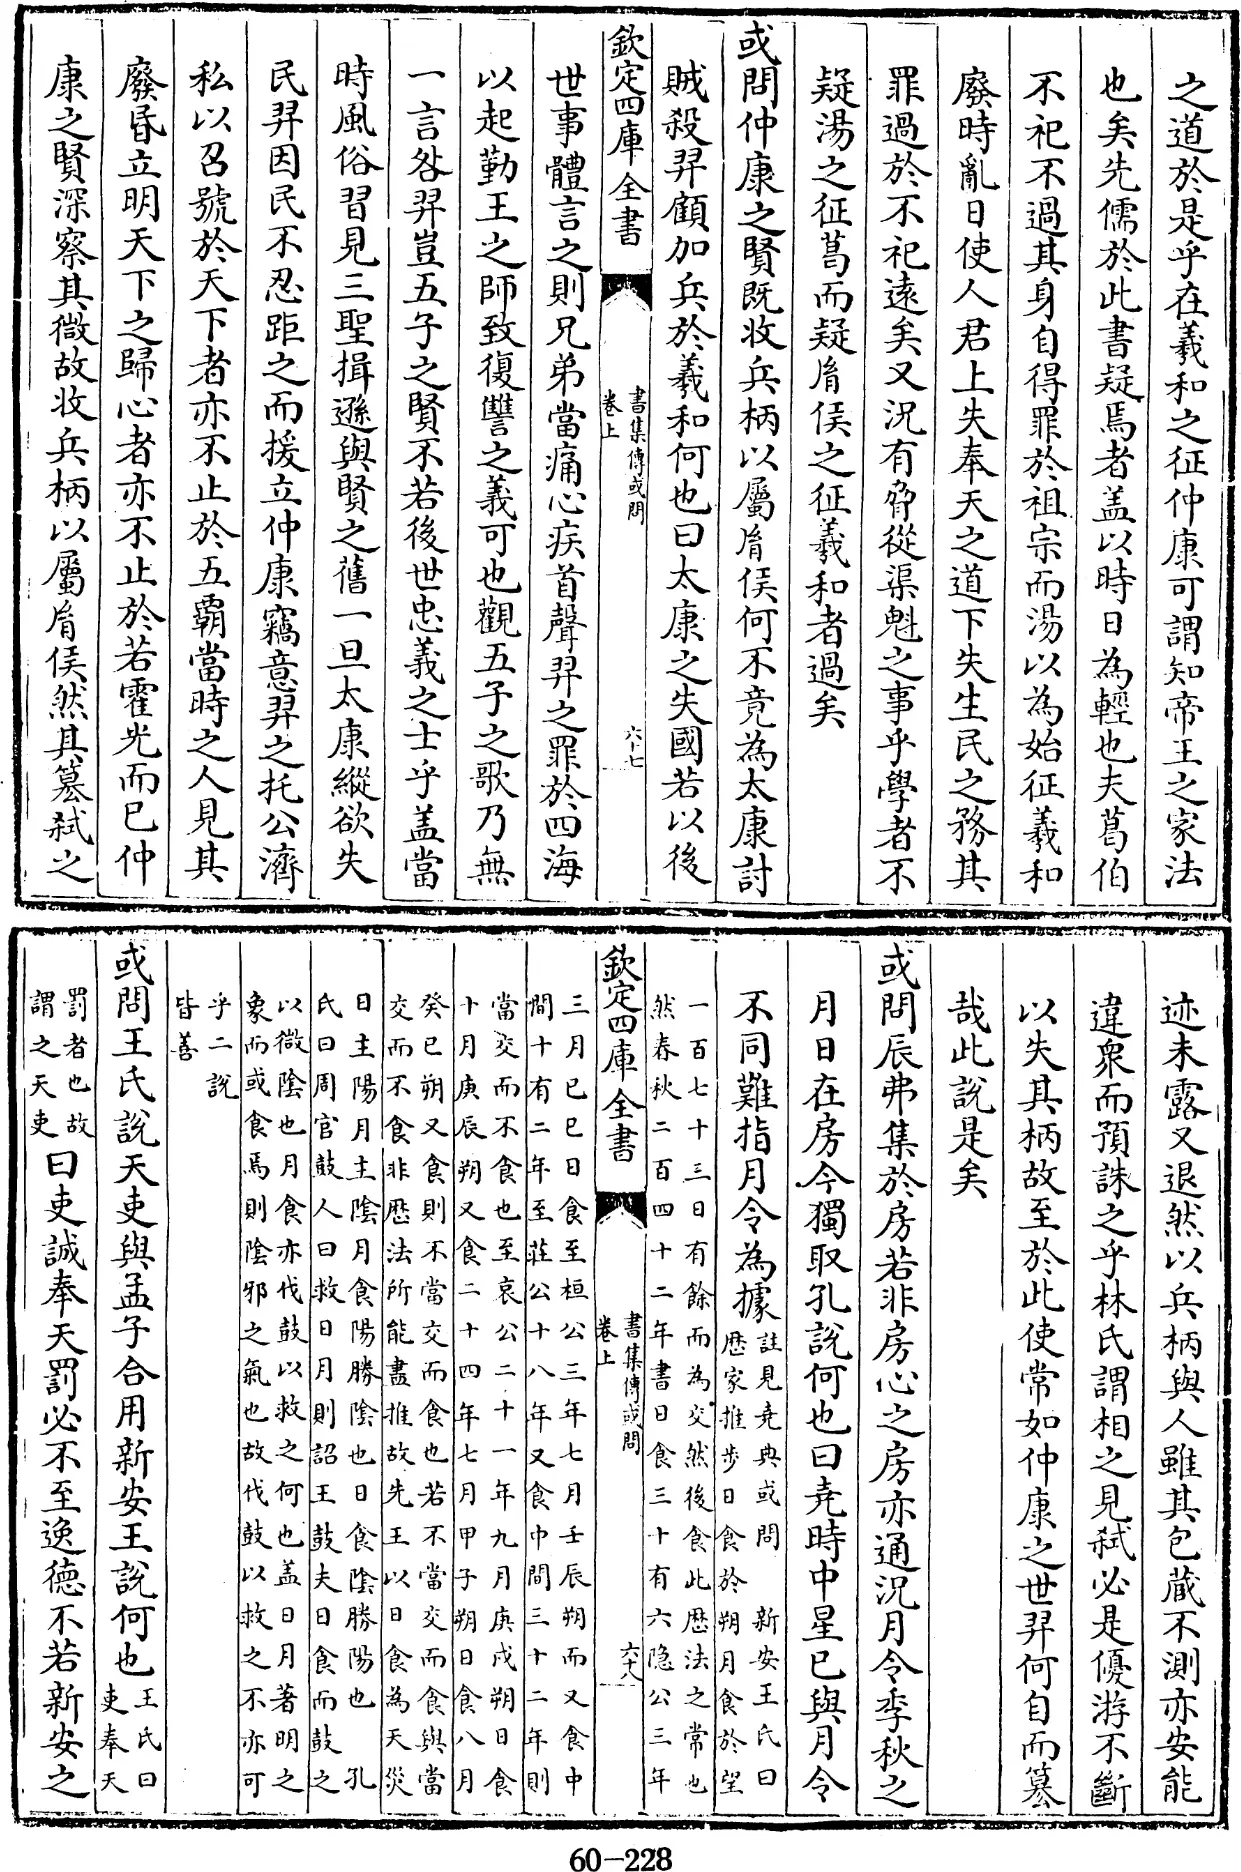 之道於是乎在羲和之征仲康可謂知帝王之家法
也矣先儒於此書疑焉者盖以時日為輕也夫葛伯
不祀不過其身自得罪於祖宗而湯以為始征羲和
廢時亂日使人君上失奉天之道下失生民之務其
罪過於不祀遠矣又況有脅從渠魁之事乎學者不
疑湯之征葛而疑胤侯之征羲和者過矣
或問仲康之賢既收兵柄以屬胤侯何不竟為太康討
賊殺羿顧加兵於羲和何也曰太康之失國若以後
欽定四庫全書
書集傳或問
卷上
六十七
世事體言之則兄弟當痛心疾首聲羿之罪於四海
以起勤王之師致復讐之義可也觀五子之歌乃無
一言咎羿豈五子之賢不若後世忠義之士乎盖當
時風俗習見三聖揖遜與賢之舊一旦太康縱欲失
民羿因民不忍距之而援立仲康竊意羿之托公濟
私以召號於天下者亦不止於五霸當時之人見其
廢昏立明天下之歸心者亦不止於若霍光而已仲
康之賢深察其微故收兵柄以屬胤侯然其簒弑之
迹未露又退然以兵柄與人雖其包藏不測亦安能
違衆而預誅之乎林氏謂相之見弑必是優游不斷
以失其柄故至於此使常如仲康之世羿何自而簒
哉此說是矣
或問辰弗集於房若非房心之房亦通況月令季秋之
月日在房今獨取孔說何也曰堯時中星已與月令
不同難指月令為據註見堯典或問 新安王氏曰
歴家推步日食於朔月食於望
一百七十三日有餘而為交然後食此歴法之常也
然春秋二百四十二年書日食三十有六隐公三年
欽定四庫全書
書集傳或問
卷上
六十八
三月已巳日食至桓公三年七月壬辰朔而又食中
間十有二年至莊公十八年又食中間三十二年則
當交而不食也至哀公二十一年九月庚戌朔日食
十月庚辰朔又食二十四年七月甲子朔日食八月
癸已朔又食則不當交而食也若不當交而食與當
交而不食非歴法所能盡推故先王以日食為天災
日主陽月主陰月食陽勝陰也日食陰勝陽也 孔
氏曰周官鼓人曰救日月則詔王鼓夫日食而鼓之
以微陰也月食亦伐鼓以救之何也盖日月著明之
象而或食焉則陰邪之氣也故伐鼓以救之不亦可
乎二說
皆善
或問王氏說天吏與孟子合用新安王說何也王氏曰
吏奉天
罰者也故
謂之天吏曰吏誠奉天罰必不至逸德不若新安之
60-228